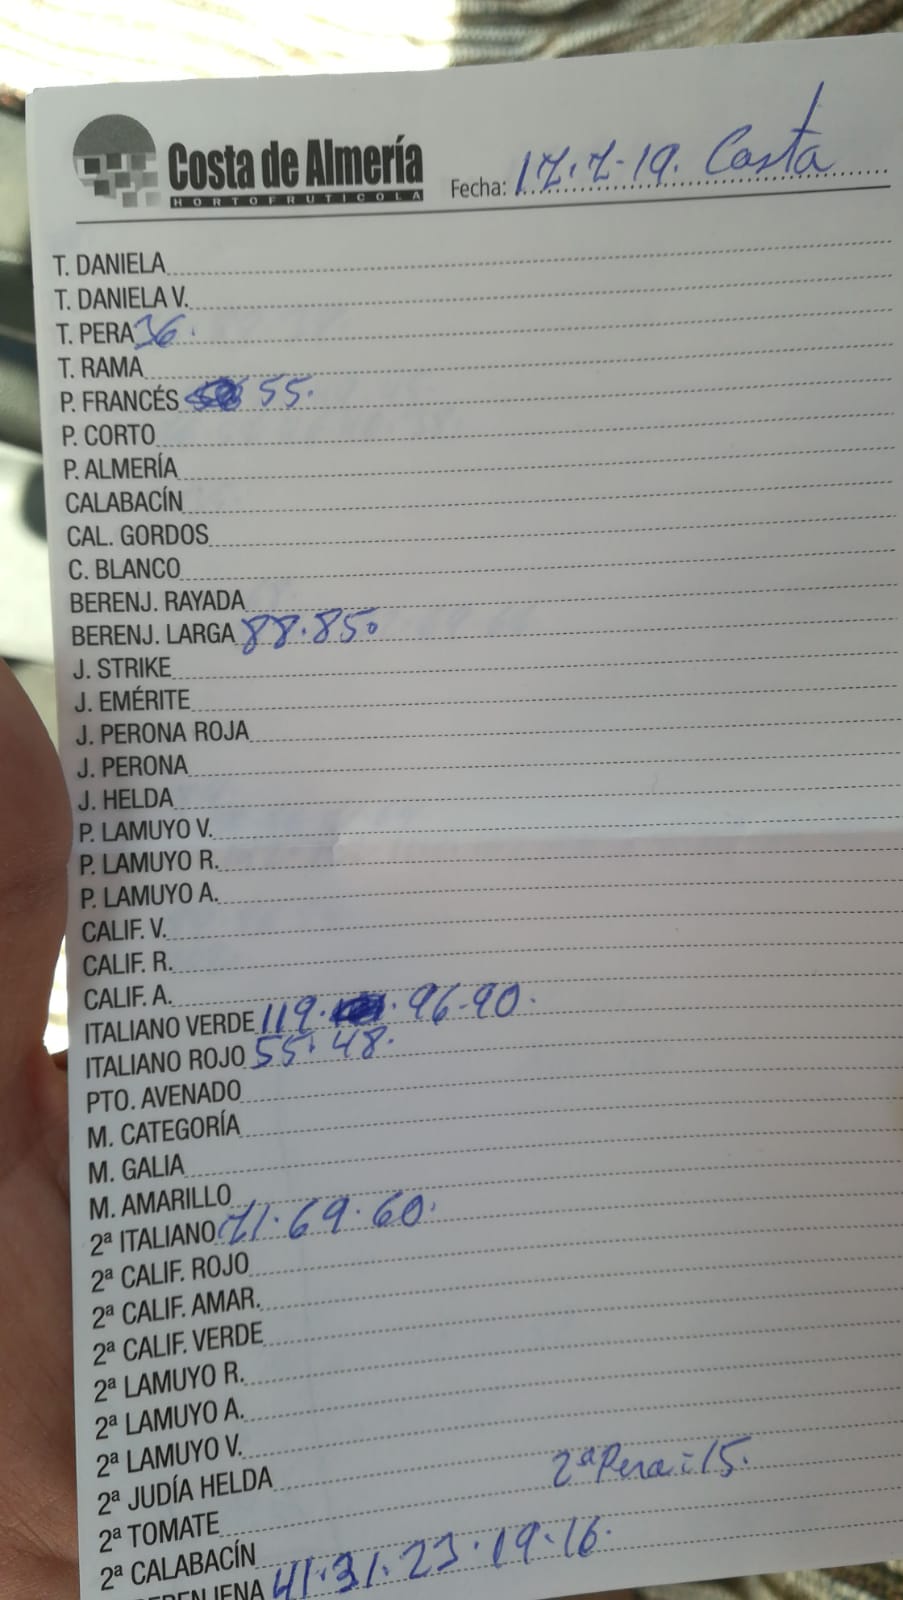 Costa de Almería
HORTOFRUTICOLA
Fecha: 17.7-19. Costa
T. DANIELA
T. DANIELA V.
T. PERA 36.
T. RAMA
P. FRANCÉS 55.
P. CORTO
P. ALMERÍA
CALABACÍN
CAL. GORDOS
C. BLANCO
BERENJ. RAYADA
BERENJ. LARGA 88.85.
J. STRIKE
J. EMÉRITE
J. PERONA ROJA
J. PERONA
J. HELDA
P. LAMUYO V.
P. LAMUYO R.
P. LAMUYO A.
CALIF. V.
CALIF. R.
CALIF. A.
ITALIANO VERDE 119. . 96-90.
ITALIANO ROJO 55. 48.
PTO. AVENADO
M. CATEGORÍA
M. GALIA
M. AMARILLO
2ª ITALIANO 71. 69. 60.
2ª CALIF. ROJO
2ª CALIF. AMAR.
2ª CALIF. VERDE
2ª LAMUYO R.
2ª LAMUYO A.
2ª LAMUYO V.
2ª JUDÍA HELDA
2ª TOMATE 2ª Pera=15.
2ª CALABACÍN
BERENJENA 41.31.23.19.16.